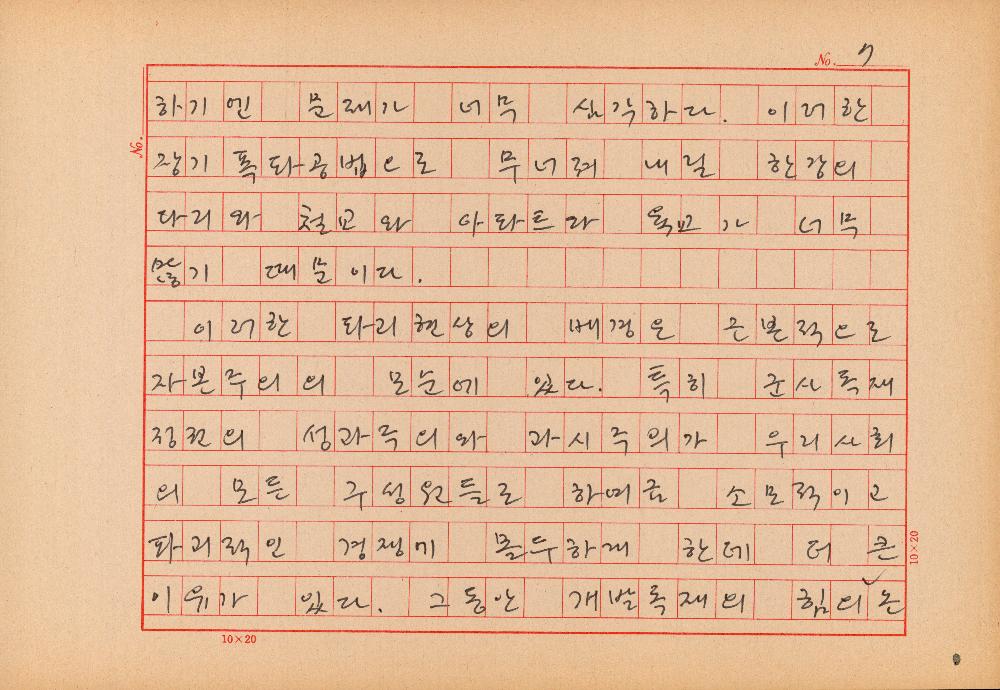 No. 7
No.
하기엔 문제가 너무 심각하다. 이러한
장기 폭파공법으로 무너져 내릴 한강의
다리와 철교와 아파트와 육교가 너무
많기 때문이다.
이러한 파괴현상의 배경은 근본적으로
자본주의의 모순에 있다. 특히 군사독재
정권의 성과주의와 과시주의가 우리사회
의 모든 구성원들로 하여금 소모적이고
파괴적인 경쟁에 몰두하게 한데 더 큰
이유가 있다. 그동안 개발독재의 힘의 논
10×20
10×20